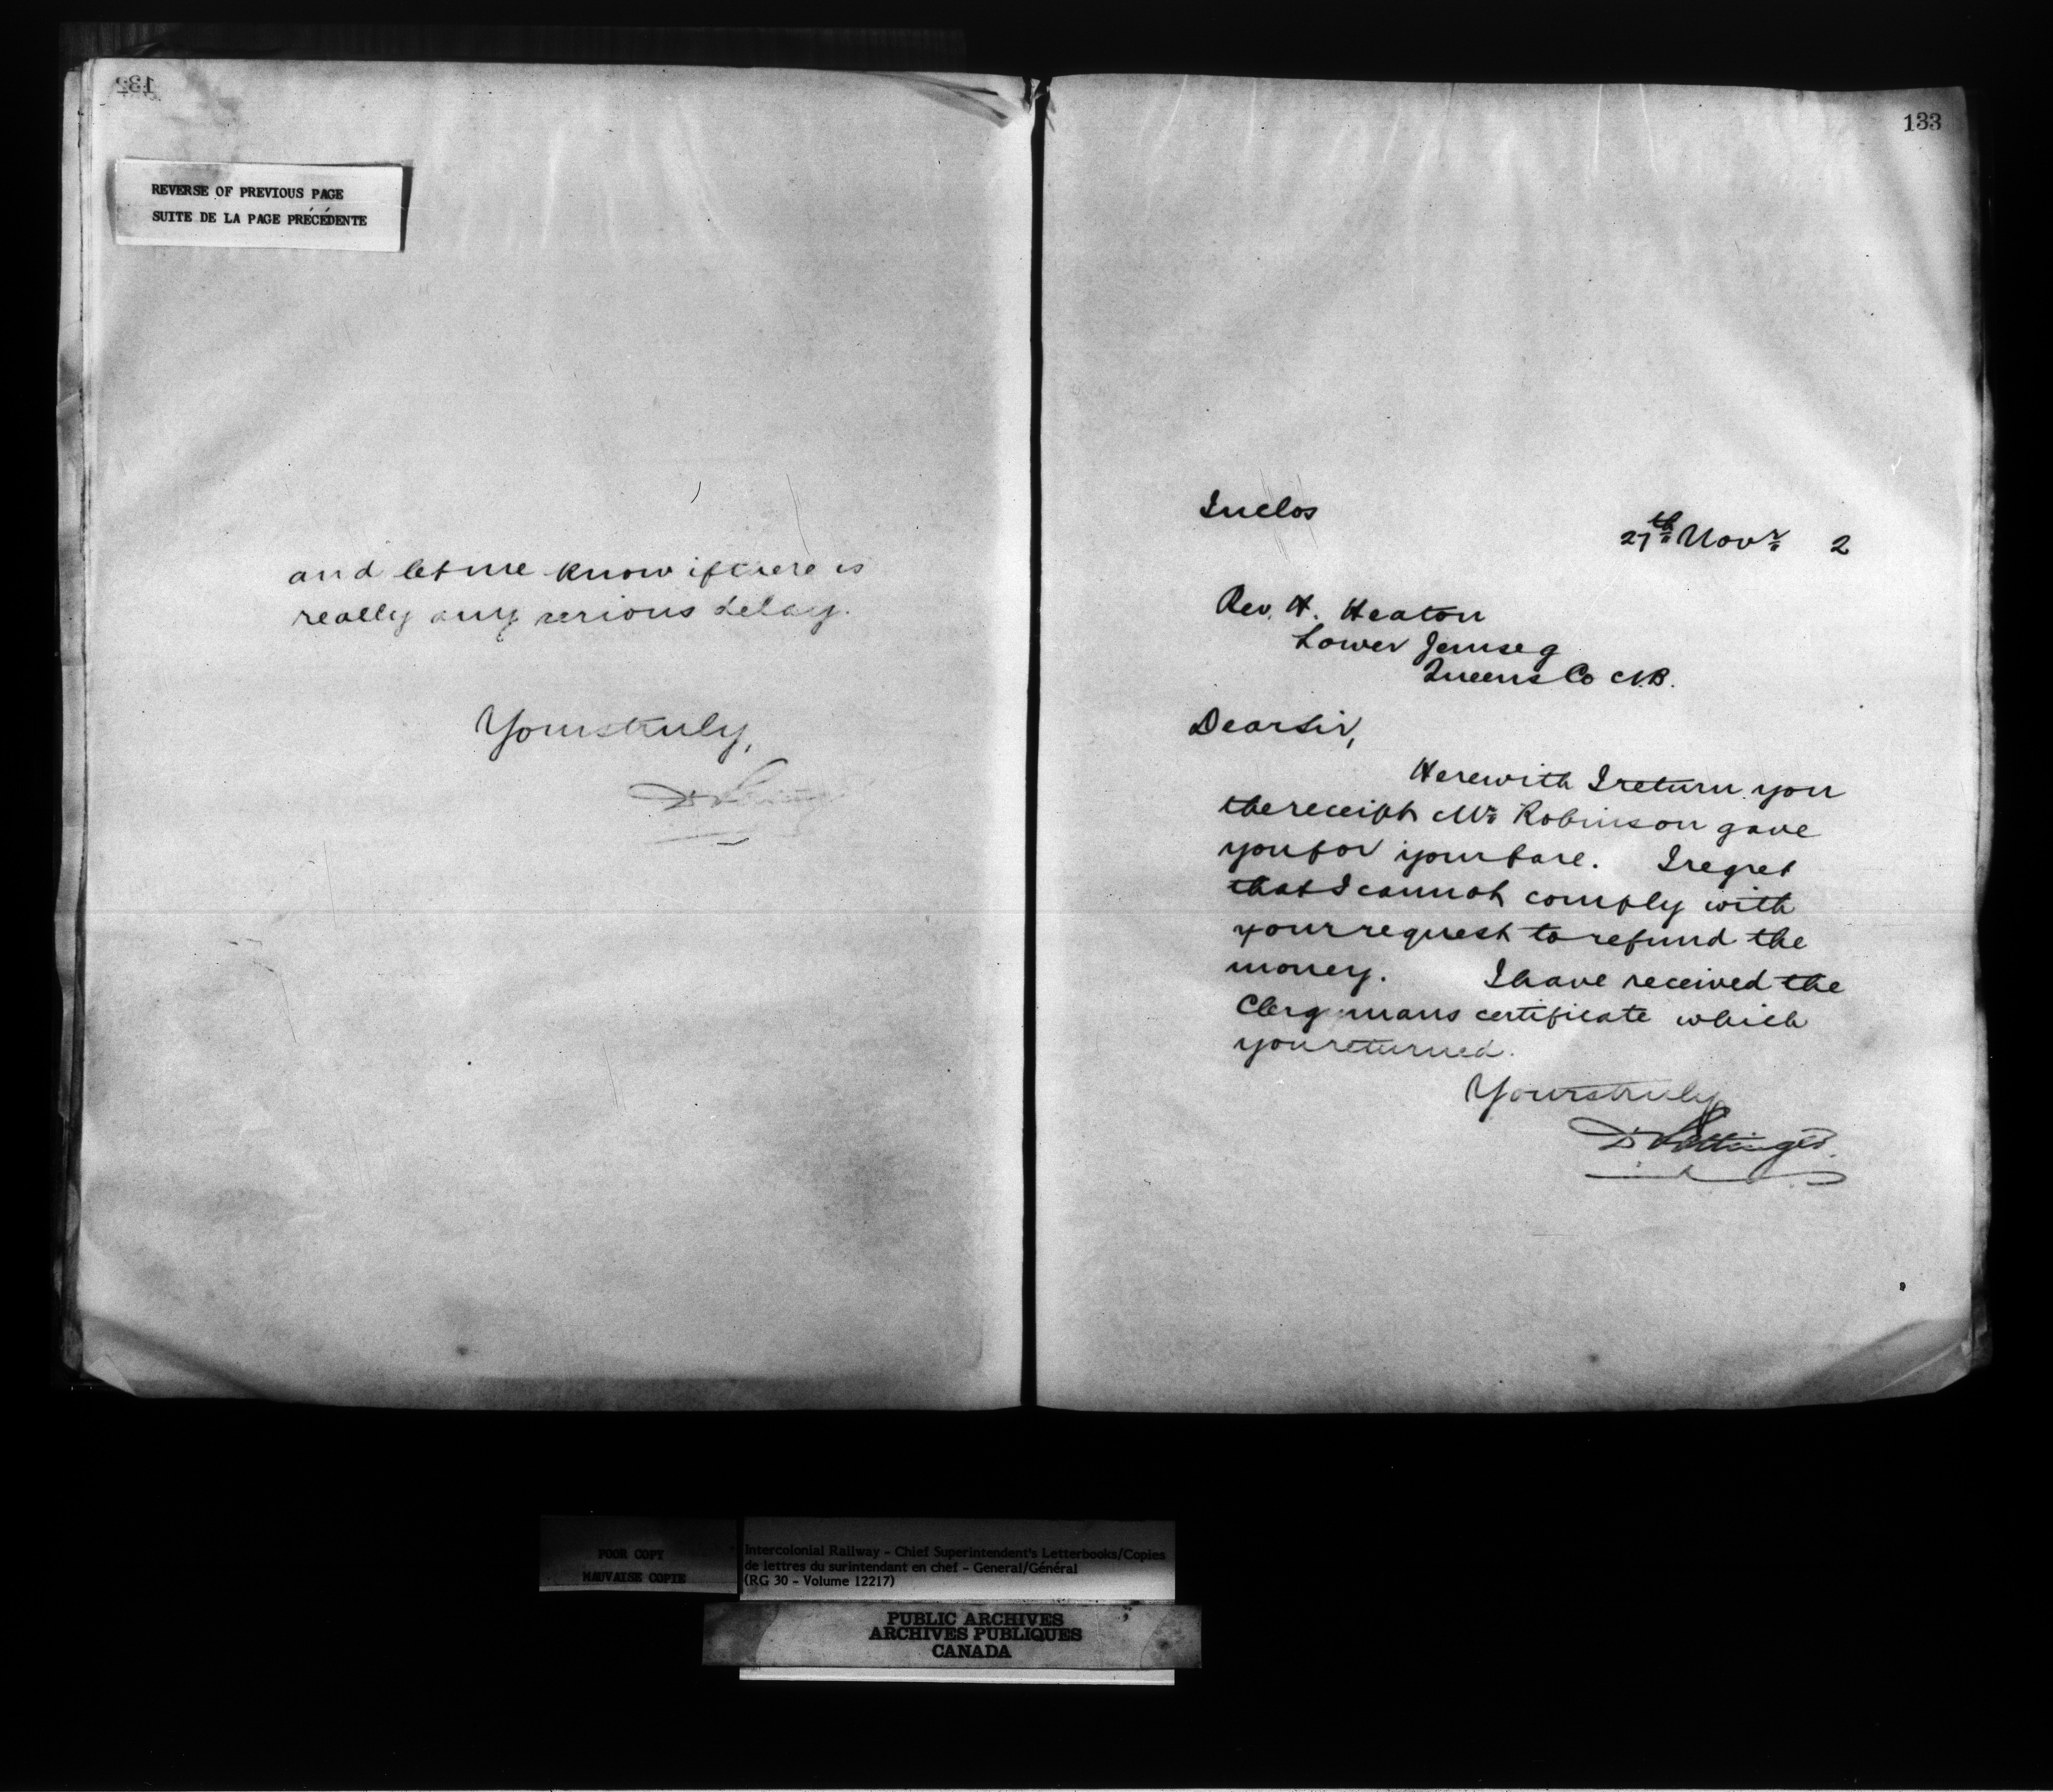 132
REVERSE OF PREVIOUS PAGE
SUITE DE LA PAGE PRÉCÉDENTE
and let me know if there is
really any serious delay.
Yours truly,
133
Inclos
27th Novr 2
Rev. H. Heaton
Lower Jemseg
Queens Co N.B.
Dear Sir,
Herewith I return you
the receipt Mr Robinson gave
you for your fare. I regret
that I cannot comply with
your request to refund the
money. I have received the
Clergymans certificate which
you returned.
Yours truly
D Pottinger
POOR COPY
MAUVAISE COPIE
Intercolonial Railway - Chief Superintendent's Letterbooks/Copies
de lettres du surintendant en chef - General/Général
(RG 30 - Volume 12217)
PUBLIC ARCHIVES
ARCHIVES PUBLIQUES
CANADA